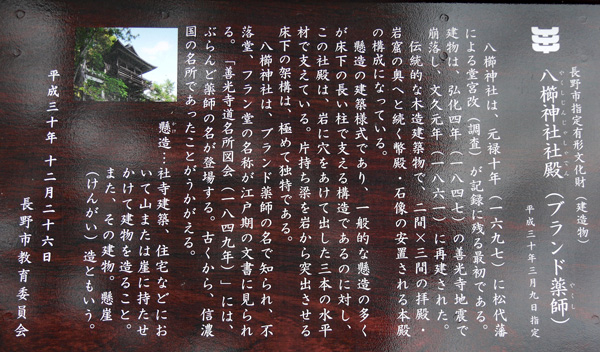 長野市指定有形文化財（建造物）
やくしじんじゃしゃでん
やくし
八櫛神社社殿（ブランド薬師）
平成三十年三月九日指定
八櫛神社は、元禄十年（一六九七）に松代藩
による堂宮改（調査）が記録に残る最初である。
建物は、弘化四年（一八四七）の善光寺地震で
崩落し、文久元年（一八六一）に再建された。
伝統的な木造建築物で、二間×三間の拝殿・
岩窟の奥へと続く幣殿・石像の安置される本殿
の構成になっている。
懸造の建築様式であり、一般的な懸造の多く
が床下の長い柱で支える構造であるのに対し、
この社殿は、岩に穴をあけて出した三本の水平
材で支えている。片持ち梁を岩から突出させる
床下の架構は、極めて独特である。
八櫛神社は、ブランド薬師の名で知られ、不
落堂、フラン堂の名称が江戸期の文書に見られ
る。「善光寺道名所図会（一八四九年）」には、
ぶらんど薬師の名が登場する。古くから、信濃
国の名所であったことがうかがえる。
懸造…社寺建築、住宅などにお
いて山または崖に持たせ
かけて建物を造ること。
また、その建物。懸崖
（けんがい）造ともいう。
平成三十年 十二月二十六日
長野市教育委員会